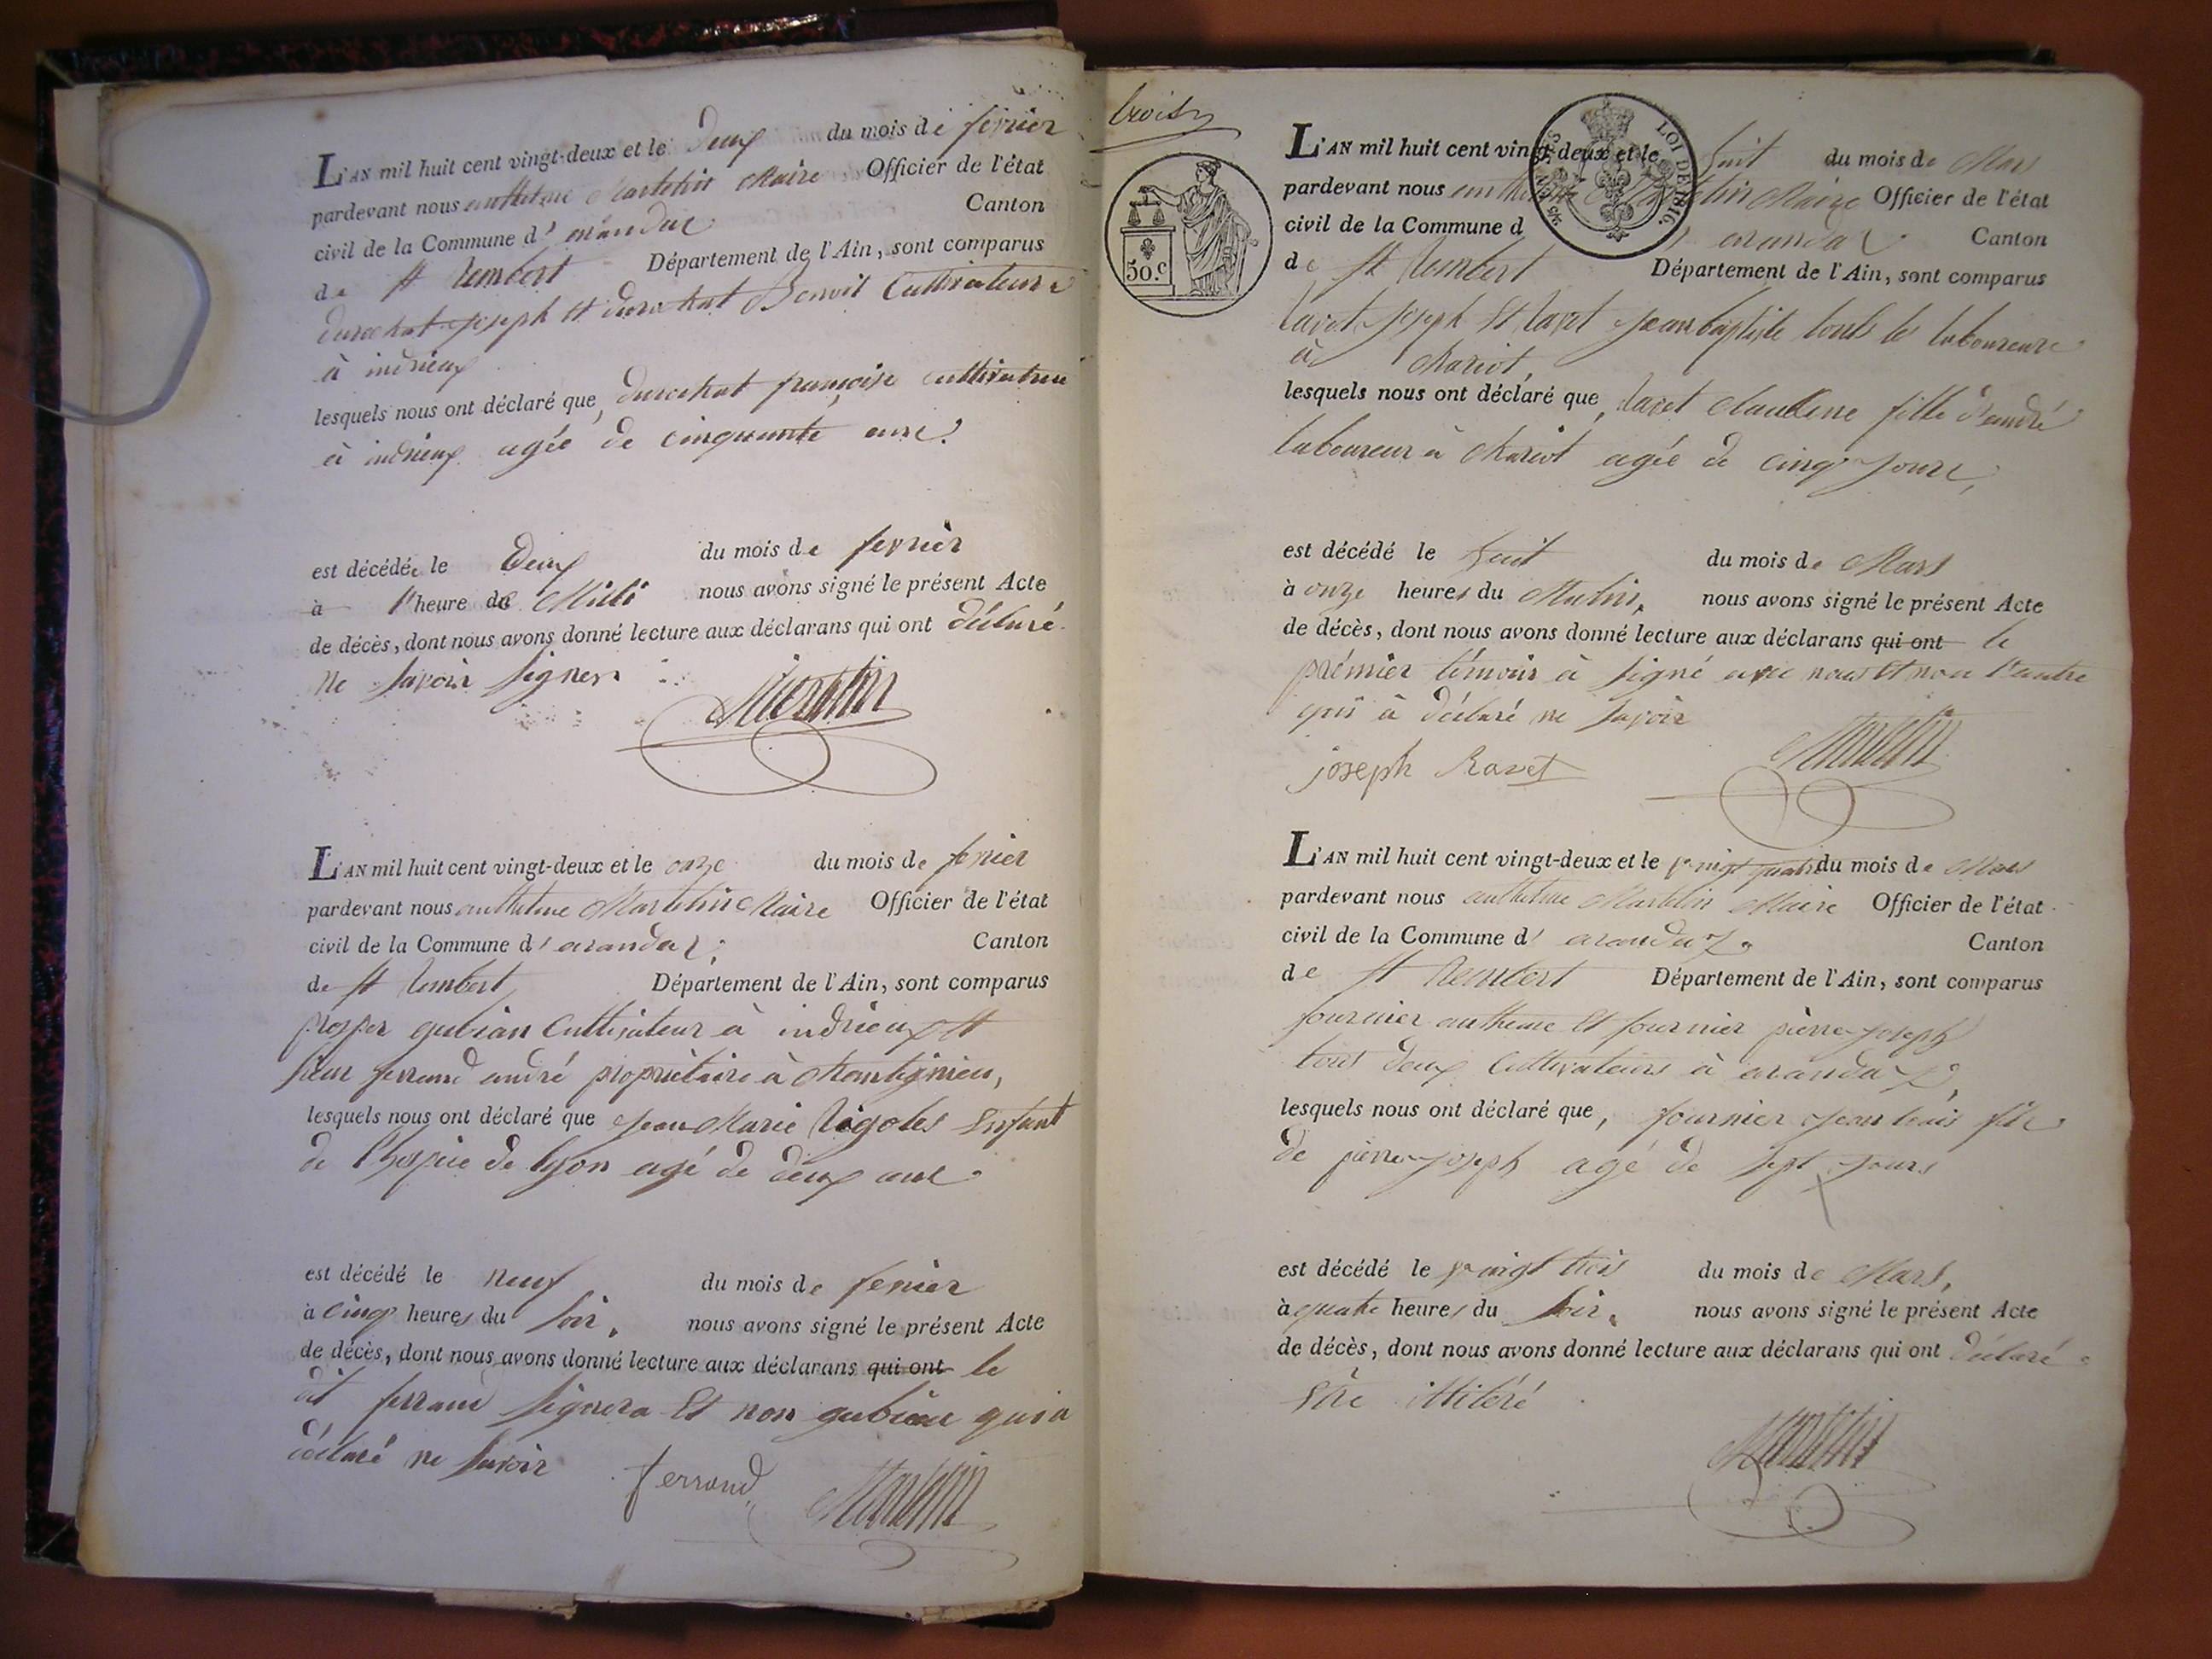 L'AN mil huit cent vingt-deux et le Deux du mois de fevrier
pardevant nous anthelme Martelin Maire Officier de l'état
civil de la Commune d' arandas Canton
de St Rembert Département de l'Ain, sont comparus
durochat joseph Et durochat Benoit Cultivateurs
à indrieux
lesquels nous ont déclaré que, durochat françoise cultivatrice
à indrieux agée de cinquante ans.
est décédée le Deux du mois de fevrier
à l'heure de Midi nous avons signé le présent Acte
de décès, dont nous avons donné lecture aux déclarans qui ont déclaré
ne savoir signer
Martelin
L'AN mil huit cent vingt-deux et le onze du mois de fevrier
pardevant nous anthelme Martelin Maire Officier de l'état
civil de la Commune d' arandas; Canton
de St Rembert Département de l'Ain, sont comparus
prosper gubian Cultivateur à indrieux Et
sieur ferrand andré propriétaire à Montagnieu,
lesquels nous ont déclaré que jean Marie Rigoles Enfant
de l'hospice de lyon agé de deux ans
est décédé le neuf du mois de fevrier
à Cinq heures du soir, nous avons signé le présent Acte
de décès, dont nous avons donné lecture aux déclarans qui ont le
dit ferrand signera Et non gubian qui a
déclaré ne savoir ferrand Martelin
troisy
50.c
LOI DE 1816.
L'AN mil huit cent vingt-deux et le huit du mois de Mars
pardevant nous anthelme Martelin Maire Officier de l'état
civil de la Commune d' arandas Canton
de St Rembert Département de l'Ain, sont comparus
ravet joseph Et ravet jean baptiste touts les laboureurs
à Chariot,
lesquels nous ont déclaré que, ravet claudine fille d'andré
laboureur à Chariot agée de cinq jours,
est décédé le huit du mois de Mars
à onze heures du Matin, nous avons signé le présent Acte
de décès, dont nous avons donné lecture aux déclarans qui ont le
prémier témoin à signé avec nous Et non l'autre
qui à déclaré ne savoir
joseph Ravet Martelin
L'AN mil huit cent vingt-deux et le vingt quatre du mois de Mars
pardevant nous anthelme Martelin Maire Officier de l'état
civil de la Commune d' arandas Canton
de St Rembert Département de l'Ain, sont comparus
fournier anthelme Et fournier pierre joseph
tous deux Cultivateurs à arandas,
lesquels nous ont déclaré que, fournier jean louis fils
de pierre joseph agé de sept jours
est décédé le vingt trois du mois de Mars,
à quatre heures du soir, nous avons signé le présent Acte
de décès, dont nous avons donné lecture aux déclarans qui ont déclaré
Etre illitéré
Martelin